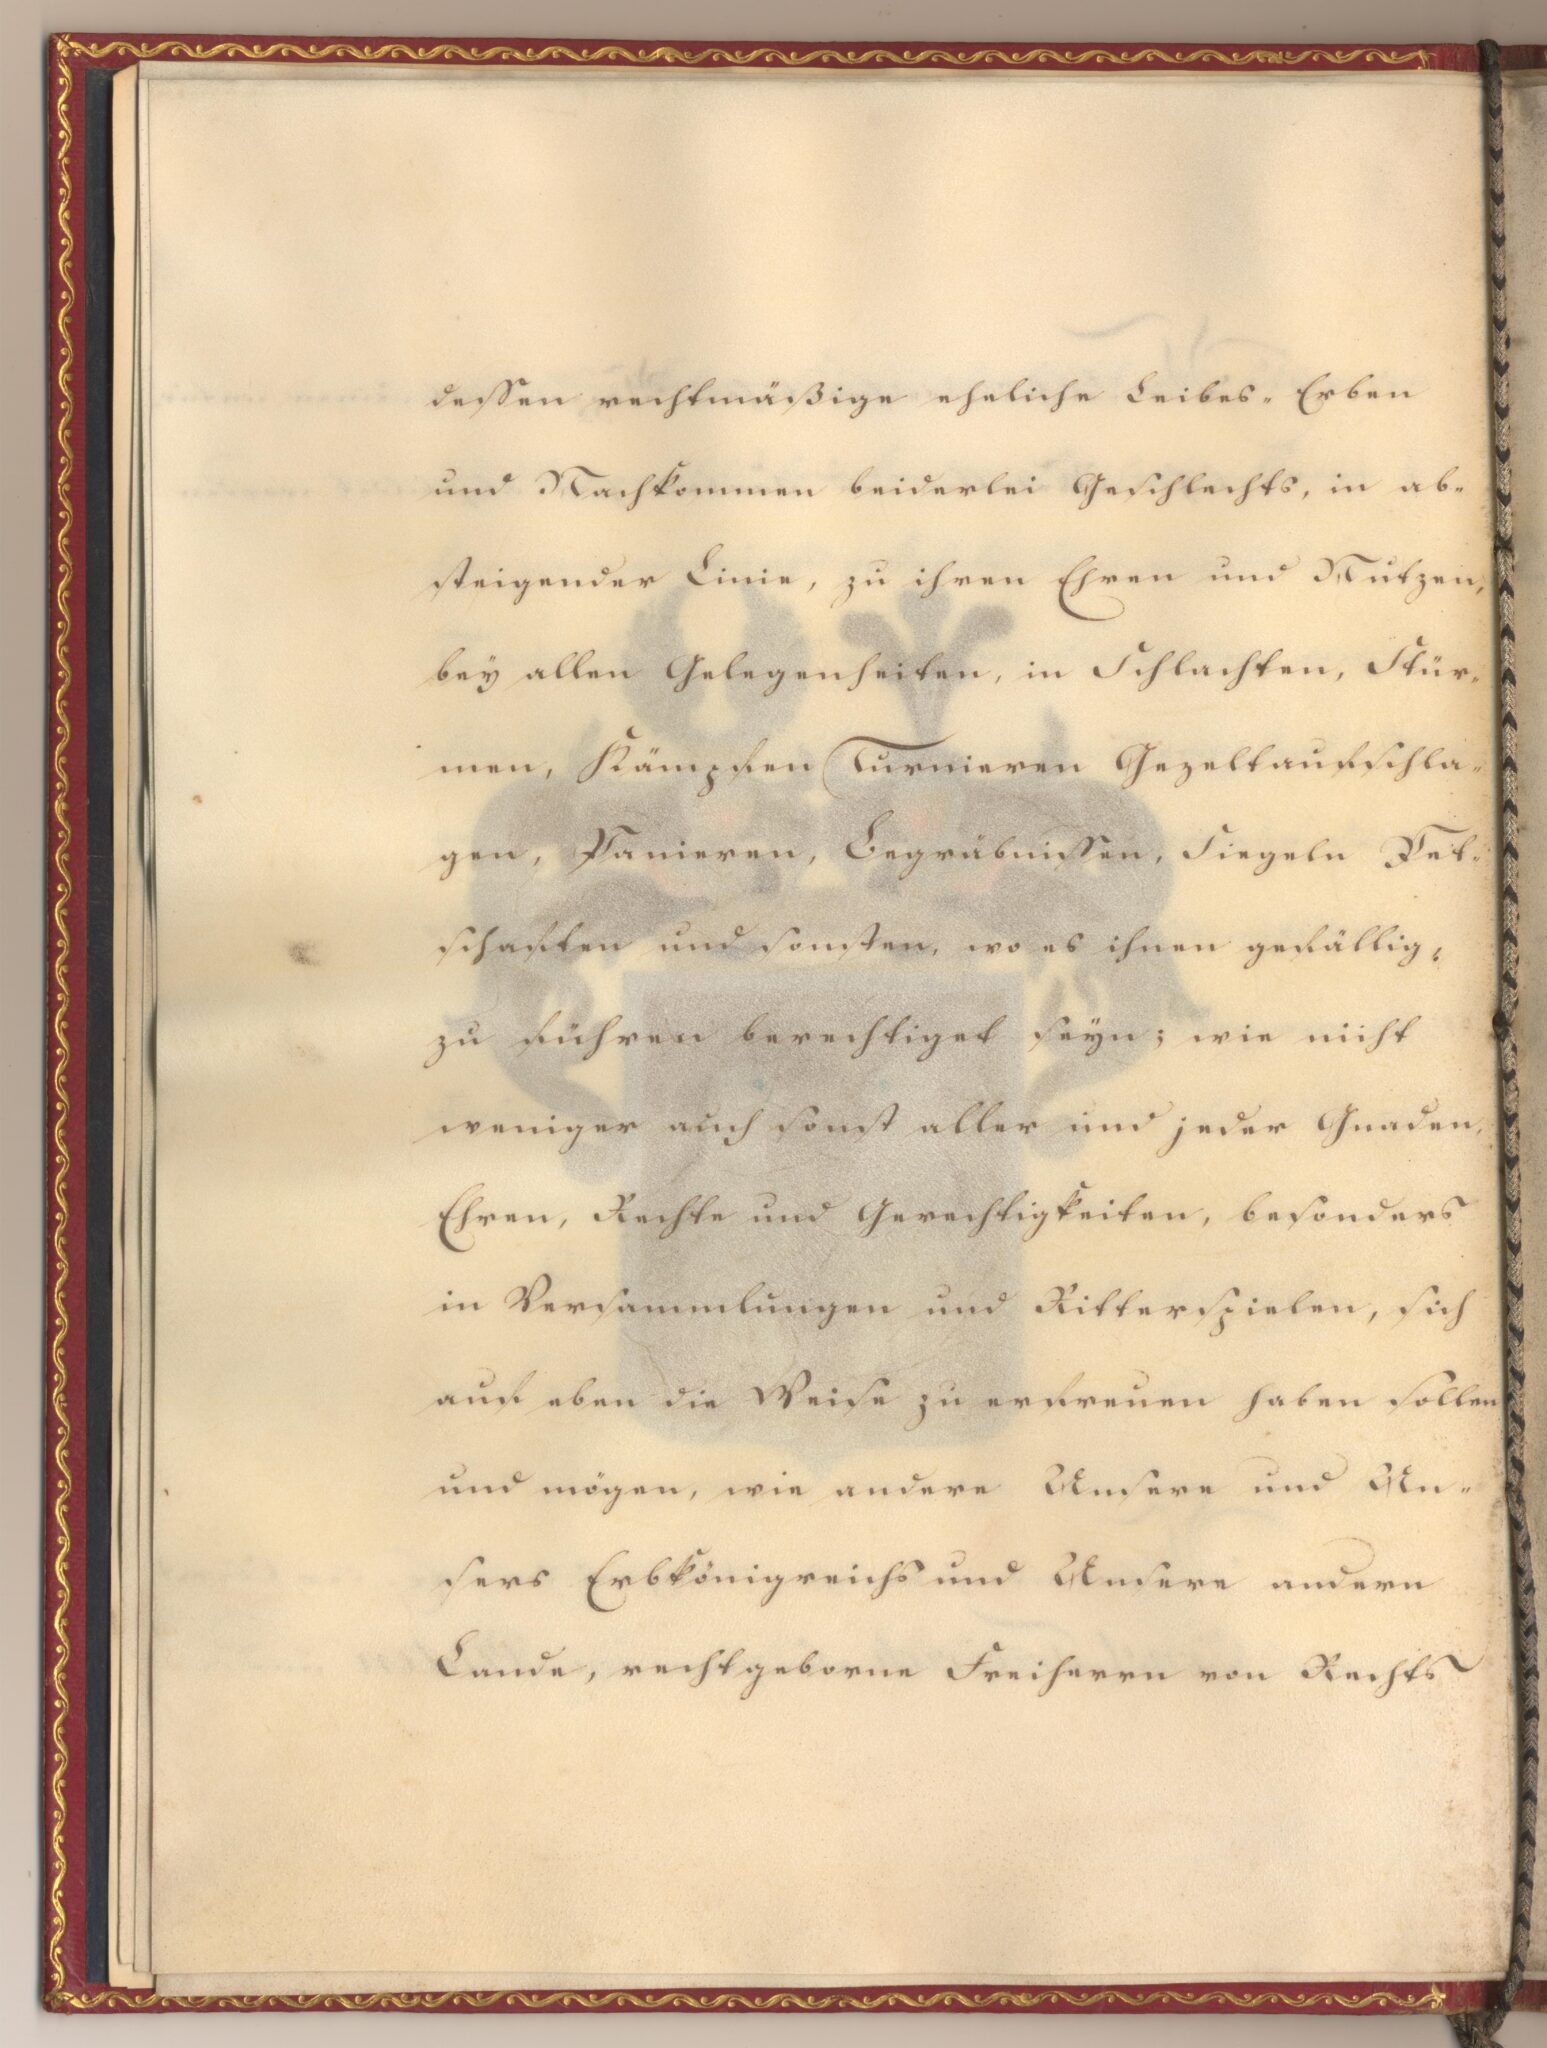 dessen rechtmäßige eheliche Leibes- Erben
und Nachkommen beiderlei Geschlechts, in ab-
steigender Linie, zu ihren Ehren und Nutzen,
bey allen Gelegenheiten, in Schlachten, Stür-
men, Kämpfen Turnieren Gezeltaufschla-
gen, Panieren, Begräbnissen, Siegeln Pet-
schaften und sonsten, wo es ihnen gefällig,
zu führen berechtiget seyn; wie nicht
weniger auch sonst aller und jeder Gnaden,
Ehren, Rechte und Gerechtigkeiten, besonders
in Versammlungen und Ritterspielen, sich
auf eben die Weise zu erfreuen haben sollen
und mögen, wie andere Unsere und Un-
sers Erbkönigreichs und Unsere andern
Lande, rechtgeborne Freiherrn von Rechts